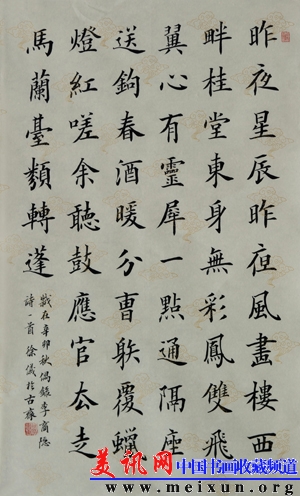 昨夜星辰昨亱風畫樓西
畔桂堂東身無彩鳳雙飛
翼心有靈犀一點通隔座
送鉤春酒暖分曹䠶覆蠟
燈紅嗟余聽鼓應官去走
馬蘭臺類轉蓬
歲在辛卯秋偶錄李商隱
詩一首 徐儀於古雍
美讯网
中国书画收藏频道
www.meixun.org